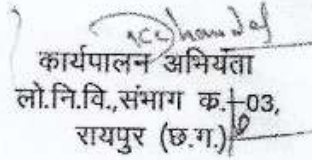 कार्यपालन अभियंता
लो.नि.वि.,संभाग क.-03,
रायपुर (छ.ग.)